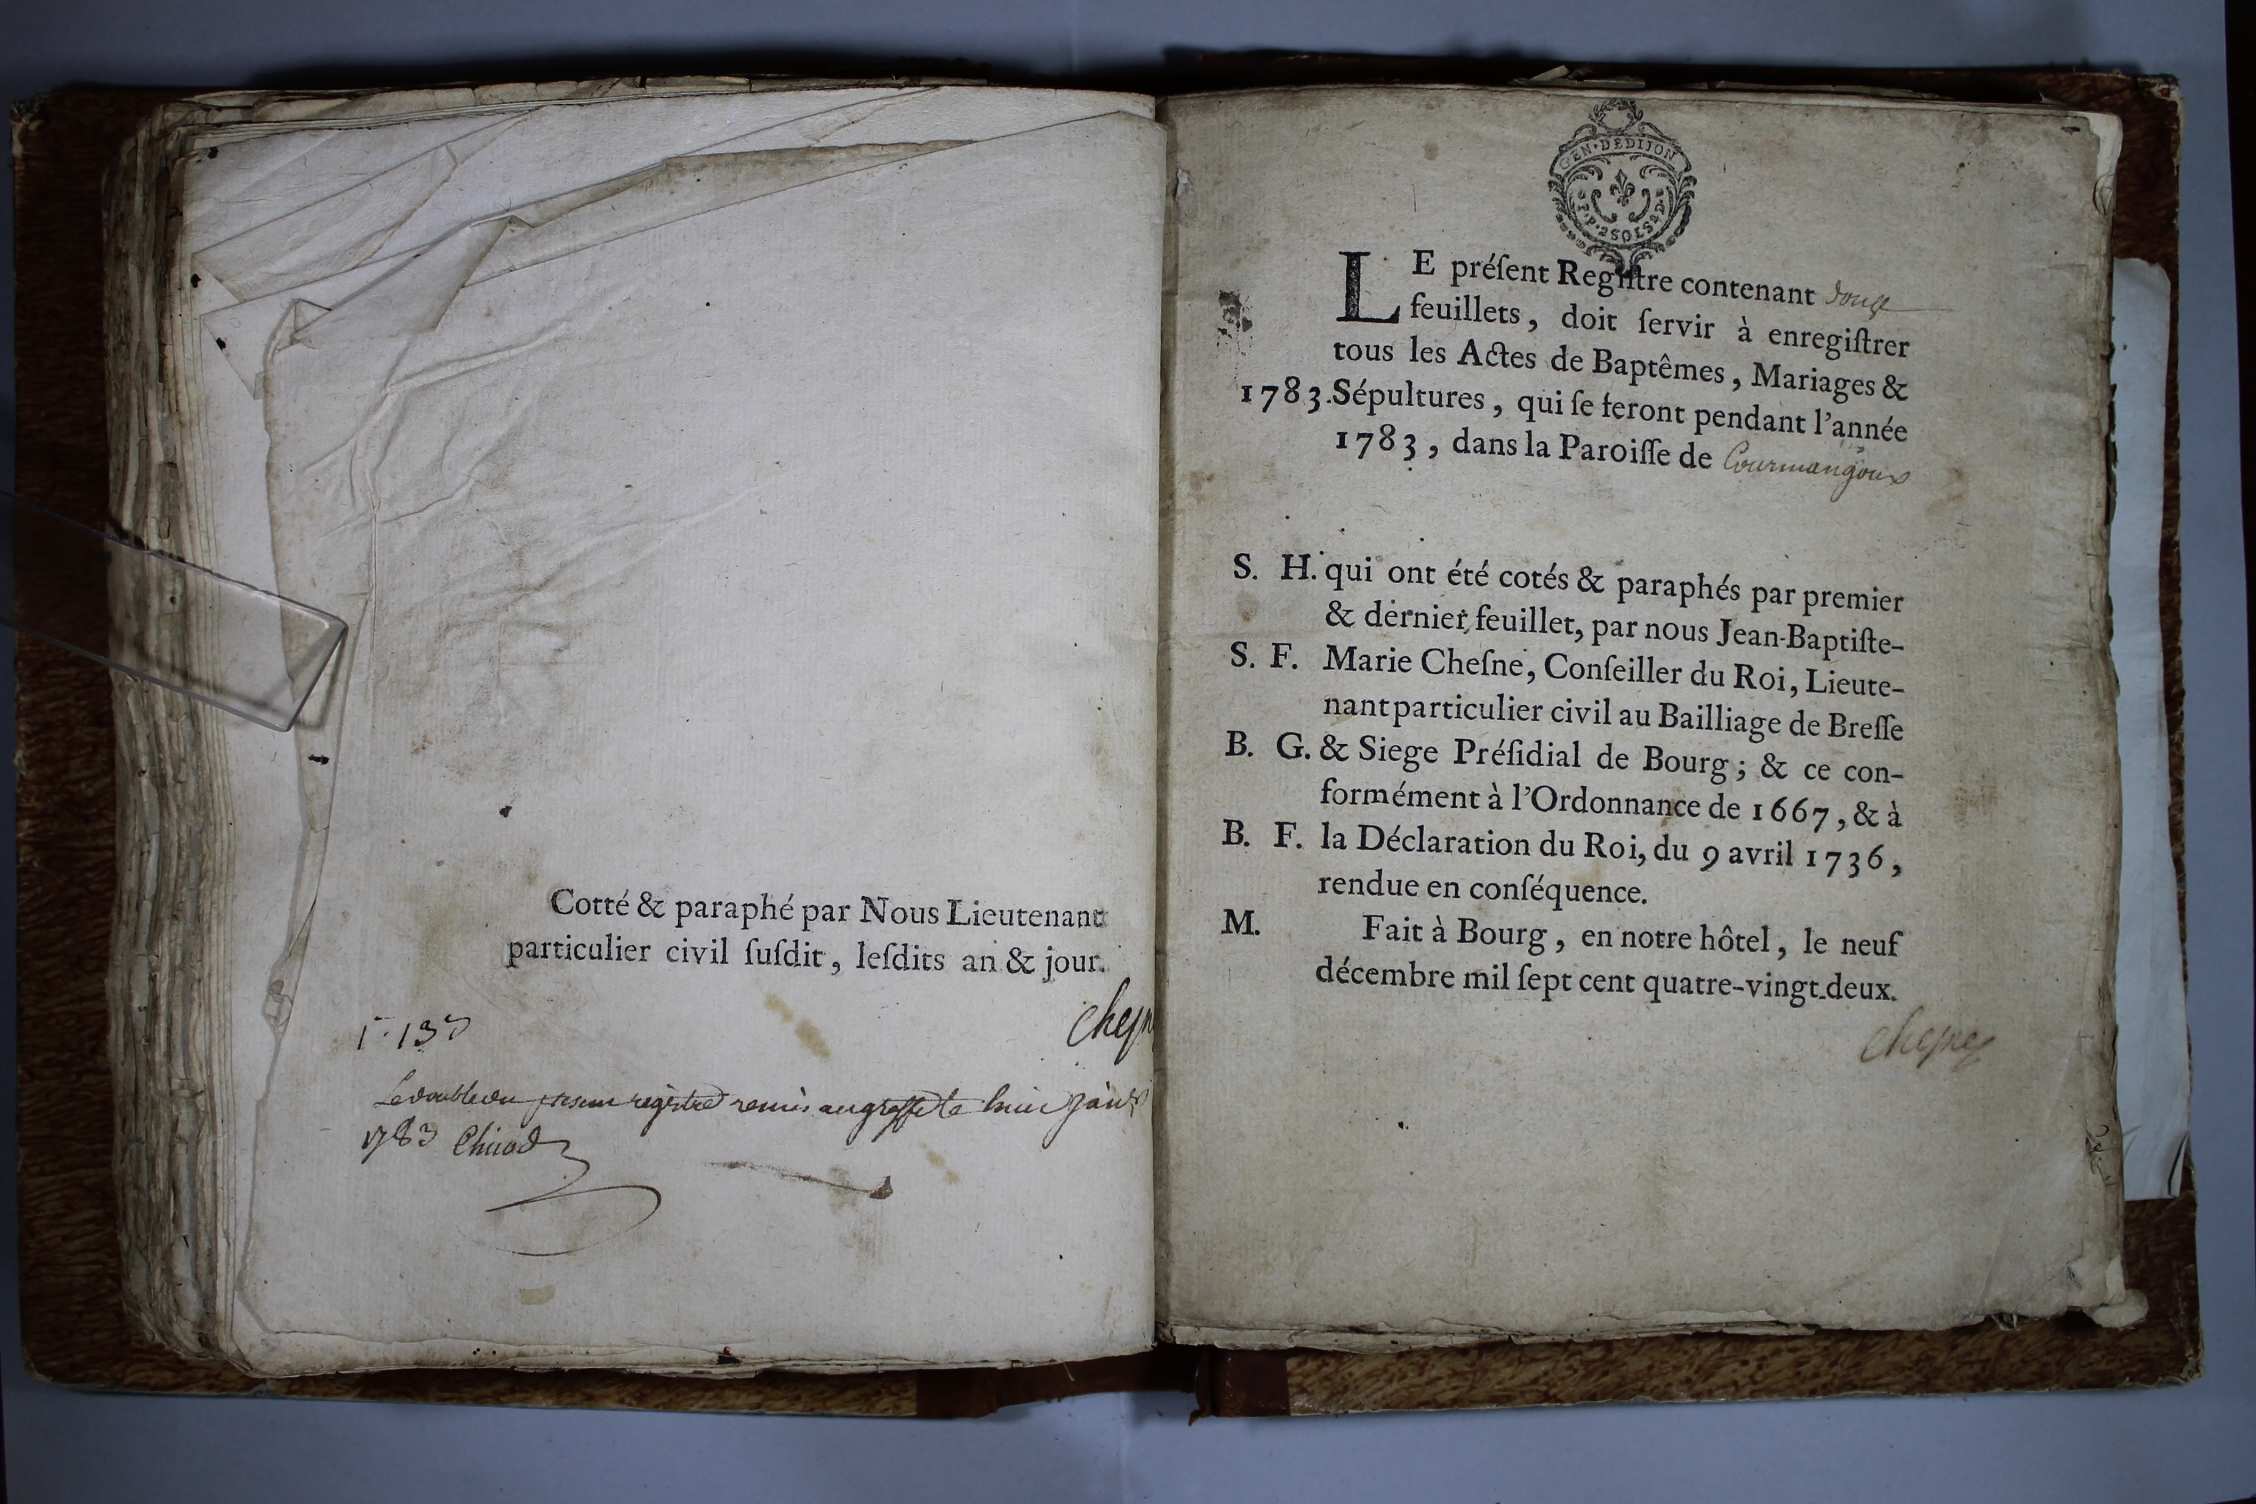 Cotté & paraphé par Nous Lieutenant
particulier civil ſuſdit, leſdits an & jour.
Le double du present registre remis au greffe le
1783 Chicod
GEN·DEDIJON
2SOLS
LE préſent Regiſtre contenant douze
feuillets, doit ſervir à enregiſtrer
tous les Actes de Baptêmes, Mariages &
1783. Sépultures, qui ſe feront pendant l'année
1783, dans la Paroiſſe de Courmangoux
S. H. qui ont été cotés & paraphés par premier
& dernier feuillet, par nous Jean-Baptiſte-
S. F. Marie Cheſne, Conſeiller du Roi, Lieute-
nant particulier civil au Bailliage de Breſſe
B. G. & Siege Préſidial de Bourg; & ce con-
formément à l'Ordonnance de 1667, & à
B. F. la Déclaration du Roi, du 9 avril 1736,
rendue en conſéquence.
M. Fait à Bourg, en notre hôtel, le neuf
décembre mil ſept cent quatre-vingt-deux.
Chesne